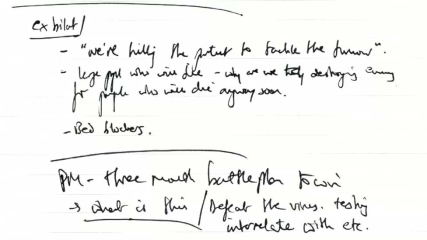 ex hilat/
- "we're killing the patient to tackle the tumour".
- large ppl who will die - why are we destroying economy
for people who will die anyway soon.
- Bed blockers.
PM - three month battle plan to win
→ what is this / Defeat the virus. testing
interrelate with etc.